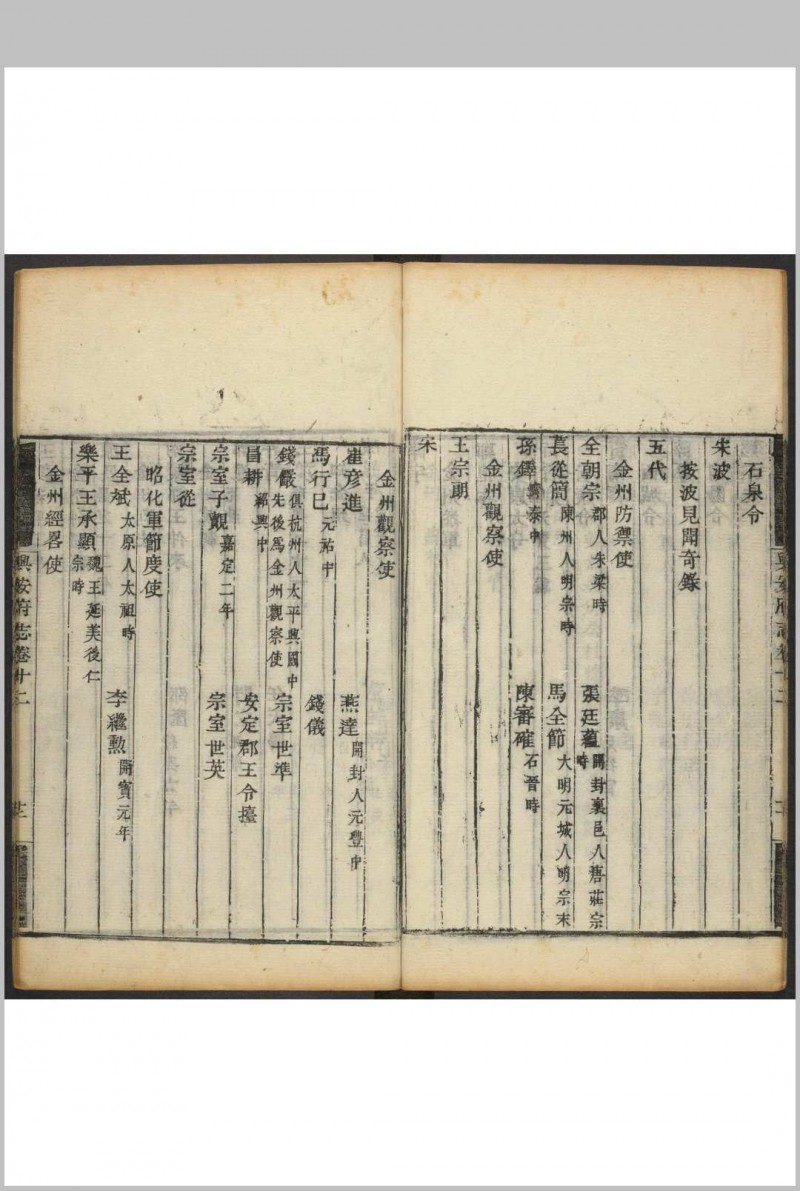 石泉令
宋波
按波見聞奇錄
五代
金州防禦使
全朝宗 郡人朱梁時 張廷蘊 開封襄邑人唐莊宗時
萇從簡 陳州人明宗時 馬全節 大明元城人明宗末
孫鐸 清泰中 陳審確 石晉時
金州觀察使
王宗朗
宋
金州觀察使
崔彥進 燕達 開封人元豐中
馬行巳 元祐中 錢儀
錢儼 俱杭州人太平興國中先後爲金州觀察使 宗室世準
昌耕 紹興中 安定郡王令𢈪
宗室子覿 嘉定二年 宗室世英
宗室從
昭化軍節度使
王全斌 太原人太祖時 李繼勲 開寶元年
樂平王承顯 魏王延美後仁宗時
金州經畧使
興安府志卷十二